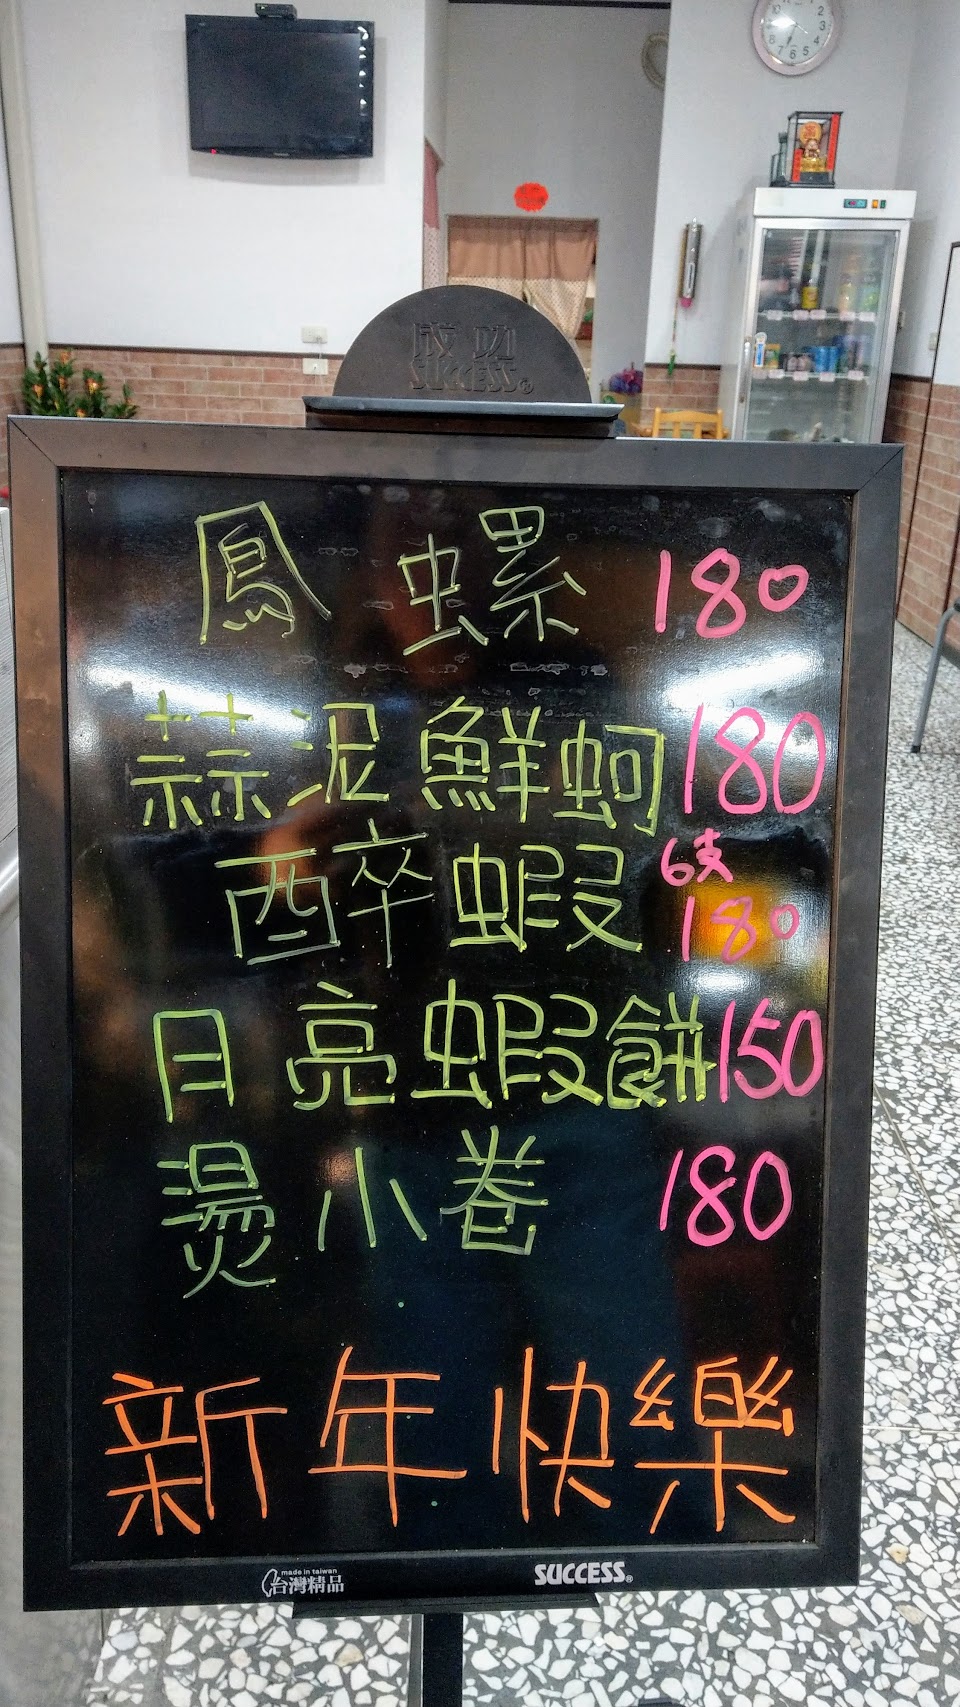 成功
SUCCESS®
鳳螺 180
蒜泥鮮蚵 180
酔卒蝦 6支
180
日亮蝦餅 150
燙小卷 180
新年快樂
made in taiwan
台灣精品
SUCCESS®